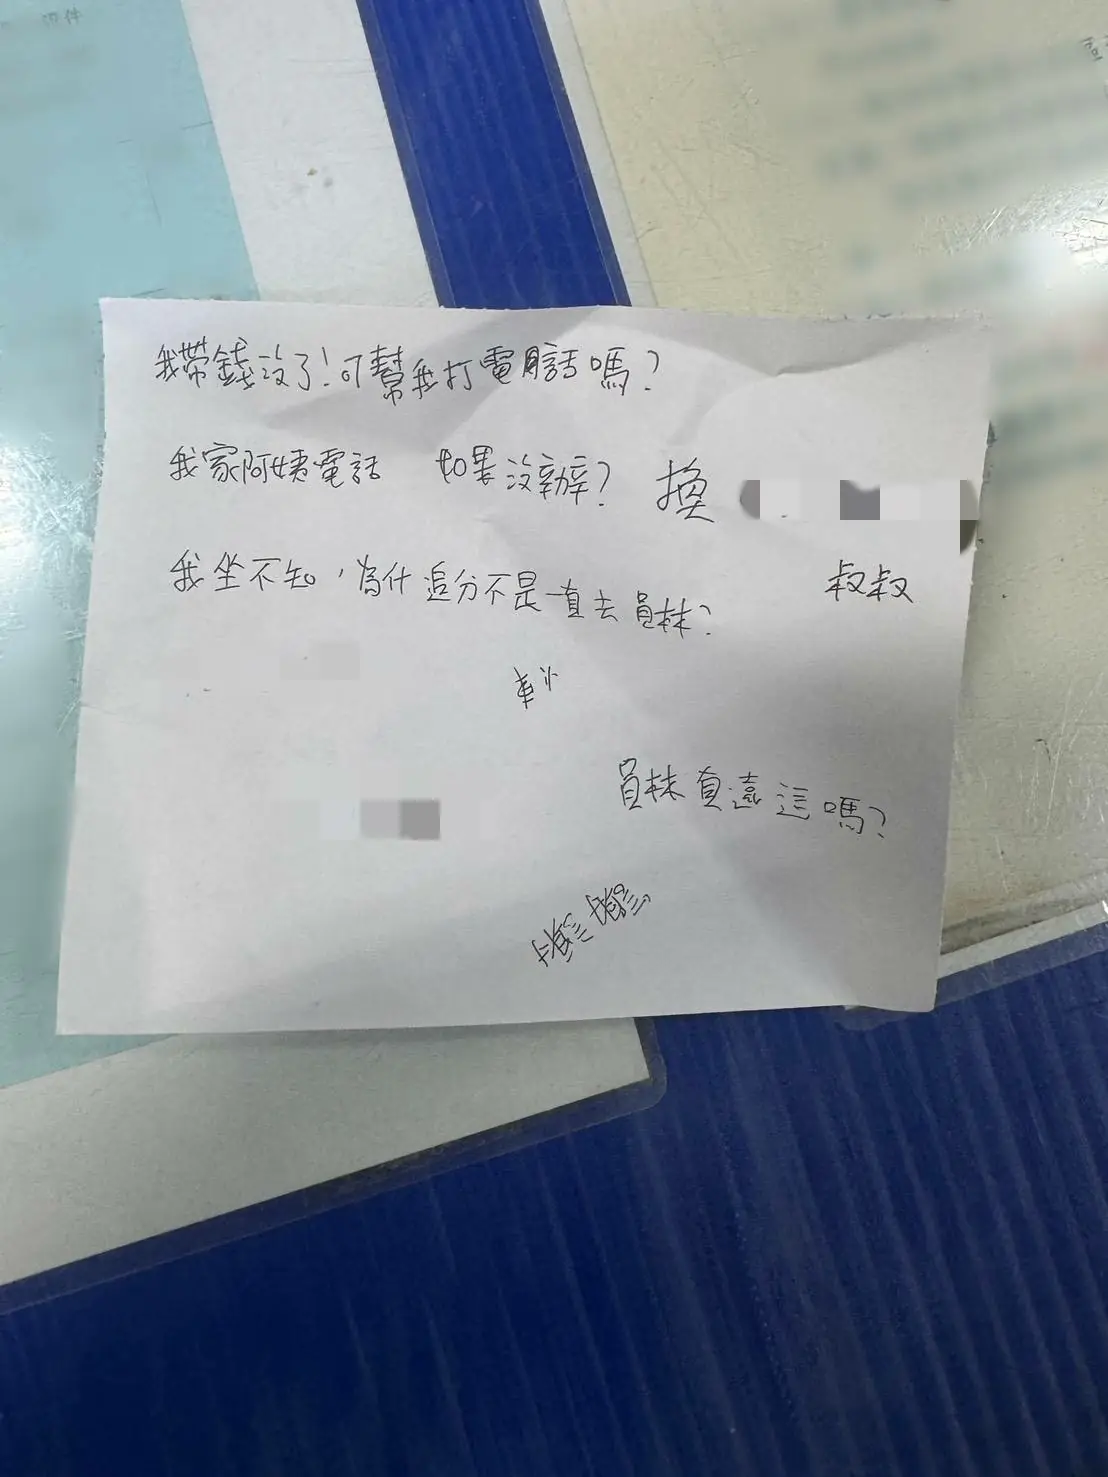 我帶錢沒了！可幫我打電話嗎？
我家阿姨電話 如果沒辦？ 換
叔叔
我坐不知，為什追分不是一直去員林？
員林有遠這嗎？